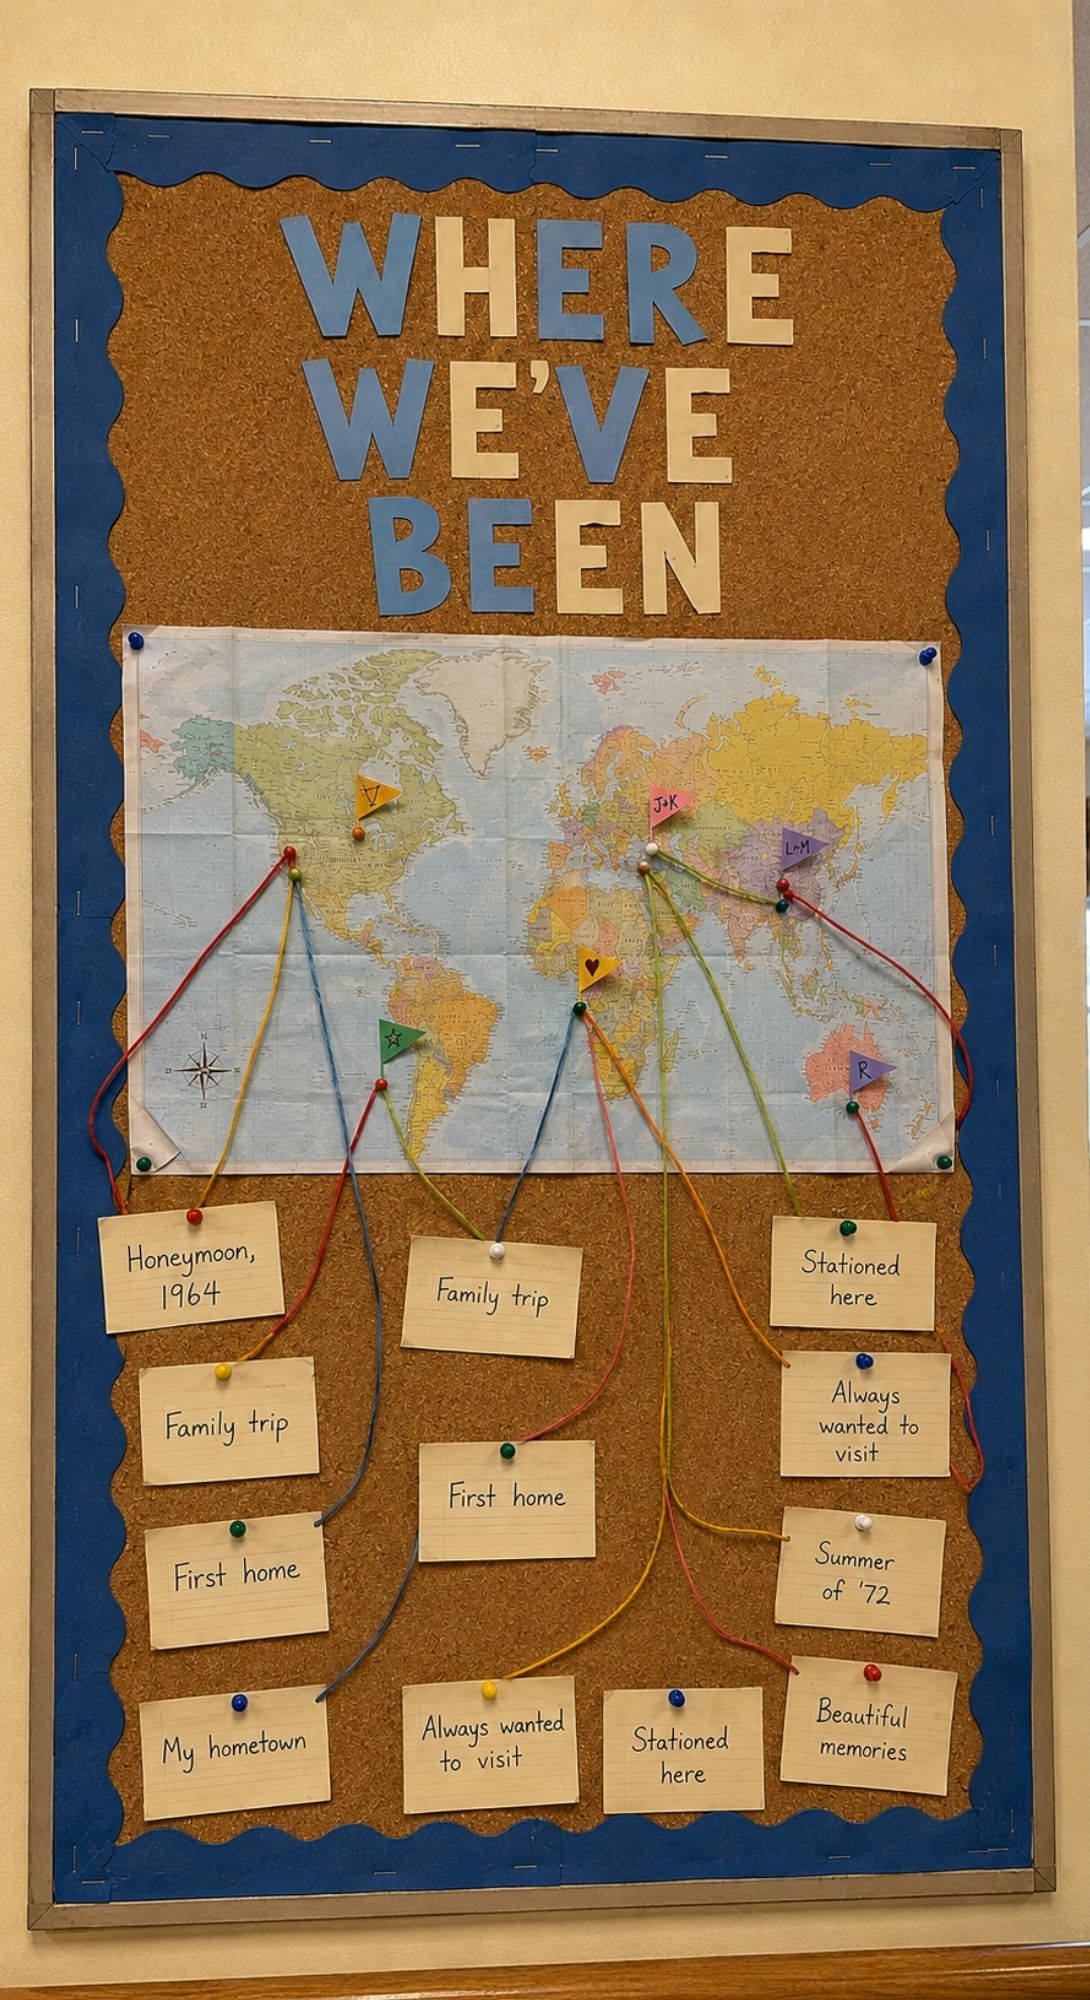 WHERE
WE'VE
BEEN
J+K
L+M
R
N
Honeymoon,
1964
Family trip
Stationed
here
Family trip
Always
wanted to
visit
First home
First home
Summer
of '72
My hometown
Always wanted
to visit
Stationed
here
Beautiful
memories